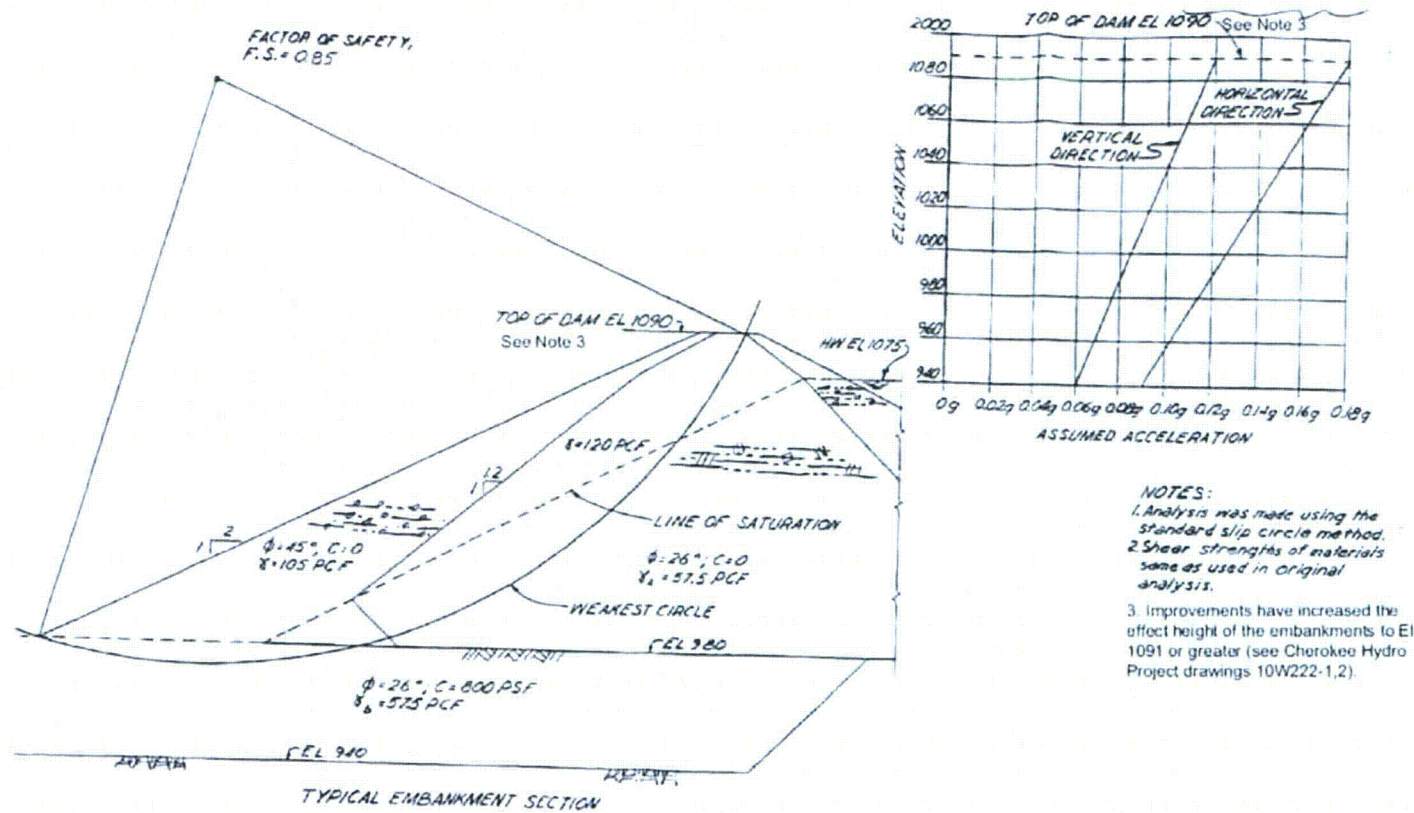 FACTOR OF SAFETY,
F.S. = 0.85
TOP OF DAM EL 1090
See Note 3
HW EL 1075
γ=120 PCF
1.2
1
LINE OF SATURATION
2
1
φ=45°, C=0
γ=105 PCF
φ=26°; C=0
γ =57.5 PCF
WEAKEST CIRCLE
EL 980
φ=26°, C=800 PSF
γb=57.5 PCF
EL 940
TYPICAL EMBANKMENT SECTION
TOP OF DAM EL 1090 See Note 3
2000
1080
1060
1040
1020
1000
980
960
940
ELEVATION
HORIZONTAL
DIRECTION
VERTICAL
DIRECTION
0g 0.02g 0.04g 0.06g 0.08g 0.10g 0.12g 0.14g 0.16g 0.18g
ASSUMED ACCELERATION
NOTES:
1. Analysis was made using the
standard slip circle method.
2. Shear strengths of materials
same as used in original
analysis.
3. Improvements have increased the
effect height of the embankments to El
1091 or greater (see Cherokee Hydro
Project drawings 10W222-1,2).